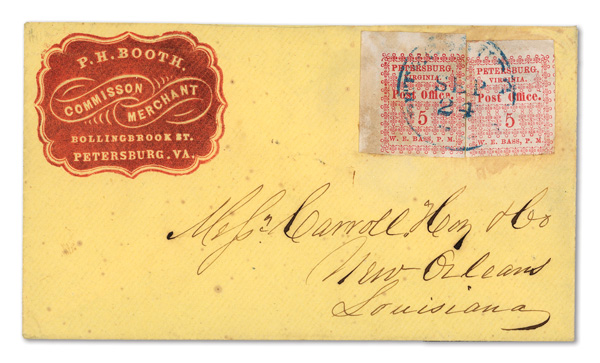 P. H. BOOTH.
COMMISSON
MERCHANT
BOLLINGBROOK ST.
PETERSBURG, VA.
PETERSBURG,
VIRGINIA.
Post Office.
5
W. E. BASS, P. M.
PETERSBURG,
VIRGINIA.
Post Office.
5
W. E. BASS, P. M
SEP
24
Messrs Carroll, Hoy & Co
New Orleans
Louisiana